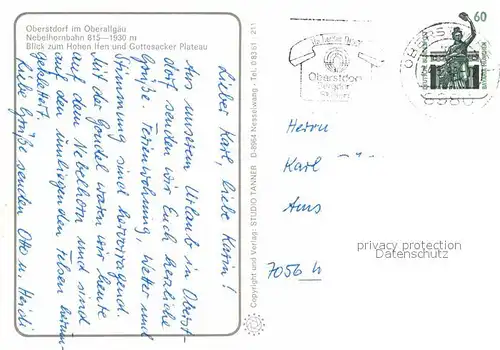 Oberstdorf im Oberallgäu
Nebelhornbahn 815—1930 m
Blick zum Hohen Ifen und Gottesacker Plateau
Lieber Karl, liebe Karin!
Aus unserem Urlaub in Oberst-
dorf senden wir Euch herzliche
Grüße. Ferienwohnung, Wetter und
Stimmung sind hervorragend.
Mit der Gondel waren wir heute
auf dem Nebelhorn und sind
auf den umliegenden Felsen herum-
geklettert.
Liebe Grüße senden Otto u. Heidi
Copyright und Verlag: STUDIO TANNER D-8964 Nesselwang - Tel. 08361 211
Oberstdorf
OBERST
8980
60
Herrn
Karl
Ams
7056
privacy protection
Datenschutz